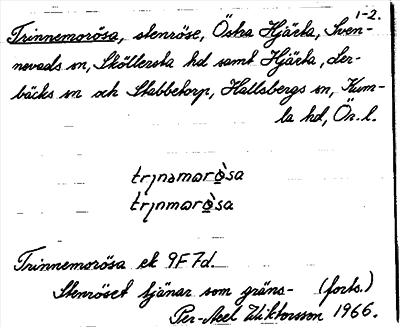 1-2.
Trinnemorösa, stenröse, Östra Hjärta, Sven-
nevads sn, Sköllersta hd samt Hjärta, Ler-
bäcks sn och Stabbetorp, Hallsbergs sn, Kum-
la hd, Ör. l.
trɩnəmorò̱sa
trɩnmorò̱sa
Trinnemorösa ek 9F7d.
Stenröset tjänar som gräns- (forts.)
Per-Axel Wiktorsson 1966.